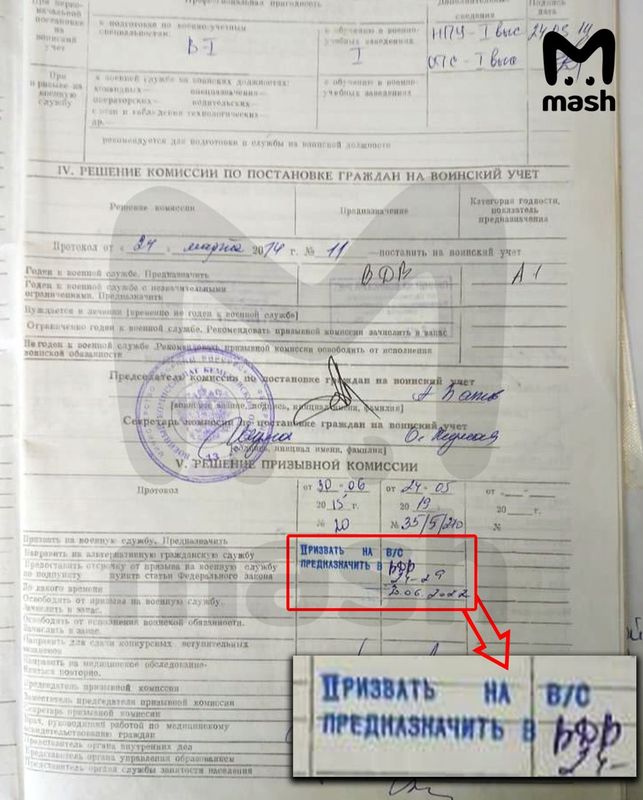 При перво-
начальной
постановке
на
воинский
учет
к подготовке по военно-учетным
специальностям:
В-I
к обучению в военно-
учебных заведениях
I
сведения
дата
НПУ - I выс
ОПС - I выс
mash
При
призыве на
военную
службу
к военной службе на воинских должностях:
командных—
операторских—
водительских—
связи и наблюдения
технологических
др.—
к обучению в военно-
учебных заведениях
рекомендуется для подготовки и службы на воинской должности
IV. РЕШЕНИЕ КОМИССИИ ПО ПОСТАНОВКЕ ГРАЖДАН НА ВОИНСКИЙ УЧЕТ
Решение комиссии
Предназначение
Категория годности,
показатель
предназначения
Протокол от « 24 » марта 2014 г. № 11 —поставить на воинский учет
Годен к военной службе. Предназначить
ВДВ
А1
Годен к военной службе с незначительными
ограничениями. Предназначить
Нуждается в лечении [временно не годен к военной службе]
Ограниченно годен к военной службе. Рекомендовать призывной комиссии зачислить в запас
Не годен к военной службе. Рекомендовать призывной комиссии освободить от исполнения
воинской обязанности
Председатель комиссии по постановке граждан на воинский учет
[воинское звание, подпись, инициал имени, фамилия]
Секретарь комиссии по постановке граждан на воинский учет
[подпись, инициал имени, фамилия]
V. РЕШЕНИЕ ПРИЗЫВНОЙ КОМИССИИ
Протокол
от 30-06
2015 г.
№ 20
от 24-05
2019 г.
№ 35/5/210
от
20 г.
№
Призвать на военную службу. Предназначить
Направить на альтернативную гражданскую службу
Предоставить отсрочку от призыва на военную службу
по подпункту пункта статьи Федерального закона
До какого времени
ПРИЗВАТЬ НА В/С
ПРЕДНАЗНАЧИТЬ В
24-29
30.06.2022
Освободить от призыва на военную службу.
Зачислить в запас.
Освободить от исполнения воинской обязанности.
Зачислить в запас.
Направить для сдачи конкурсных вступительных
экзаменов
Направить на медицинское обследование
Явиться повторно.
Председатель призывной комиссии
Заместитель председателя призывной комиссии
Секретарь призывной комиссии
Врач, руководящий работой по медицинскому
освидетельствованию граждан
Представитель органа внутренних дел
Представитель органа управления образованием
Представитель органа службы занятости населения
ПРИЗВАТЬ НА В/С
ПРЕДНАЗНАЧИТЬ В
24-